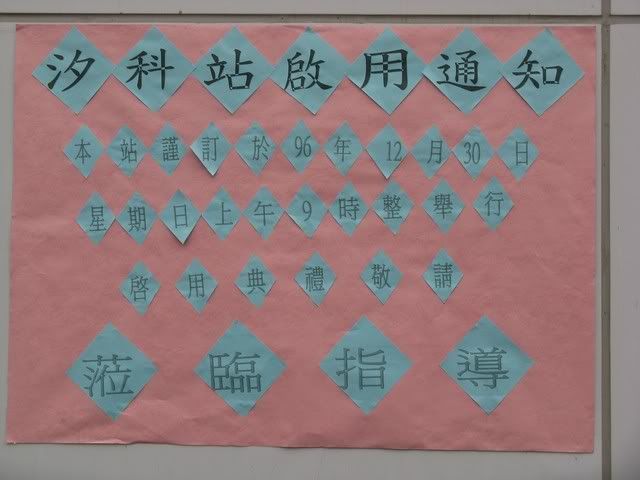 汐科站啟用通知
本站謹訂於96年12月30日
星期日上午9時整舉行
啓用典禮敬請
蒞臨指導